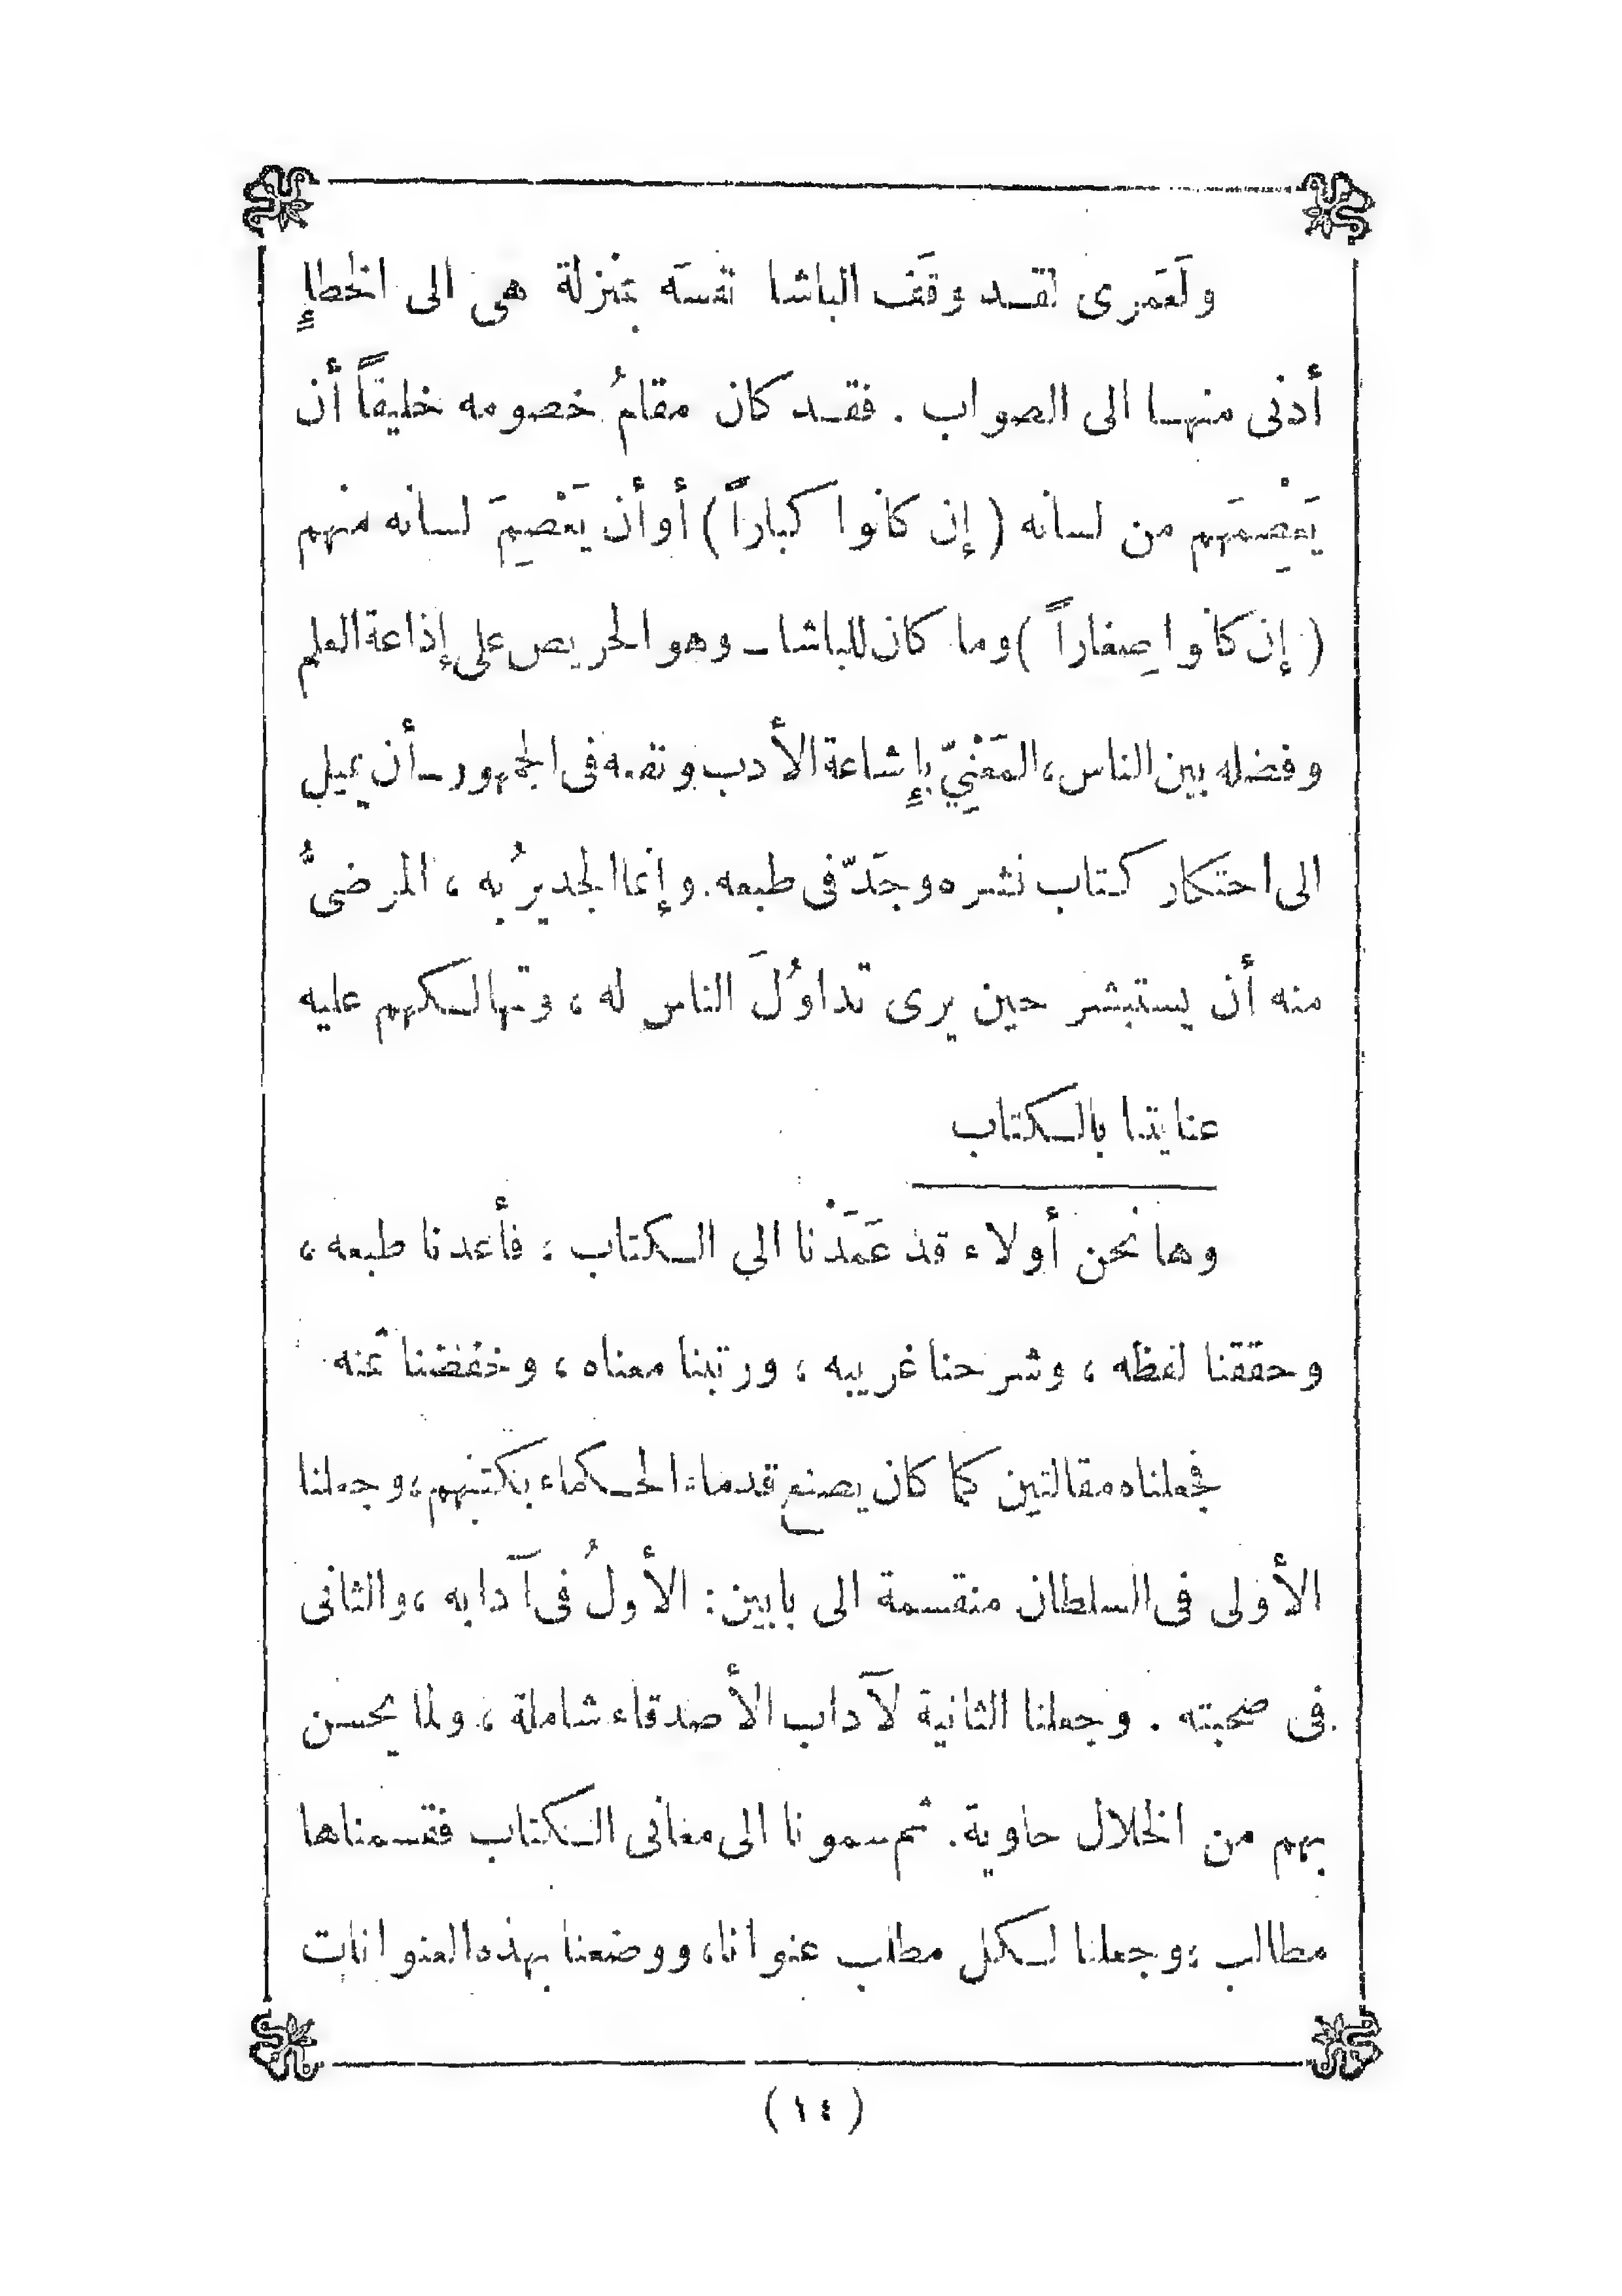 ولَعَمرى لقد وقَف الباشا نفسَه بمنزلة هى الى الخطإِ
أدنى منها الى الصواب . فقد كان مقامُ خصومه خليقاً أن
يَعْصِمَهم من لسانه ( إن كانوا كباراً ) أو أن يَعْصِمَ لسانه منهم
( إن كانوا صِغاراً ) وما كان للباشا ـ وهو الحريص على إذاعة العلم
وفضله بين الناس ، المَعْنِيّ بإِشاعة الأدب ونفعه فى الجمهور ـ أن يميل
الى احتكار كتاب نشره وجَدّ فى طبعه . وإنما الجديرُ به ، المرضىُّ
منه أن يستبشر حين يرى تداوُلَ الناس له ، وتهالكهم عليه
عنايتنا بالكتاب
وها نحن أولاء قد عَمَدْنا الي الكتاب ، فأعدنا طبعه ،
وحققنا لفظه ، وشرحنا غريبه ، ورتبنا معناه ، وخفضنا ثمنه
فجعلناه مقالتين كما كان يصنع قدماء الحكماء بكتبهم ، وجعلنا
الأولى فى السلطان منقسمة الى بابين : الأولُ فى آدابه ، والثانى
فى صحبته . وجعلنا الثانية لآداب الأصدقاء شاملة ، ولما يحسن
بهم من الخلال حاوية . ثم سمونا الى معانى الكتاب فقسمناها
مطالب ، وجعلنا لكل مطلب عنوانا ، ووضعنا بهذه العنوانات
( ١٤ )